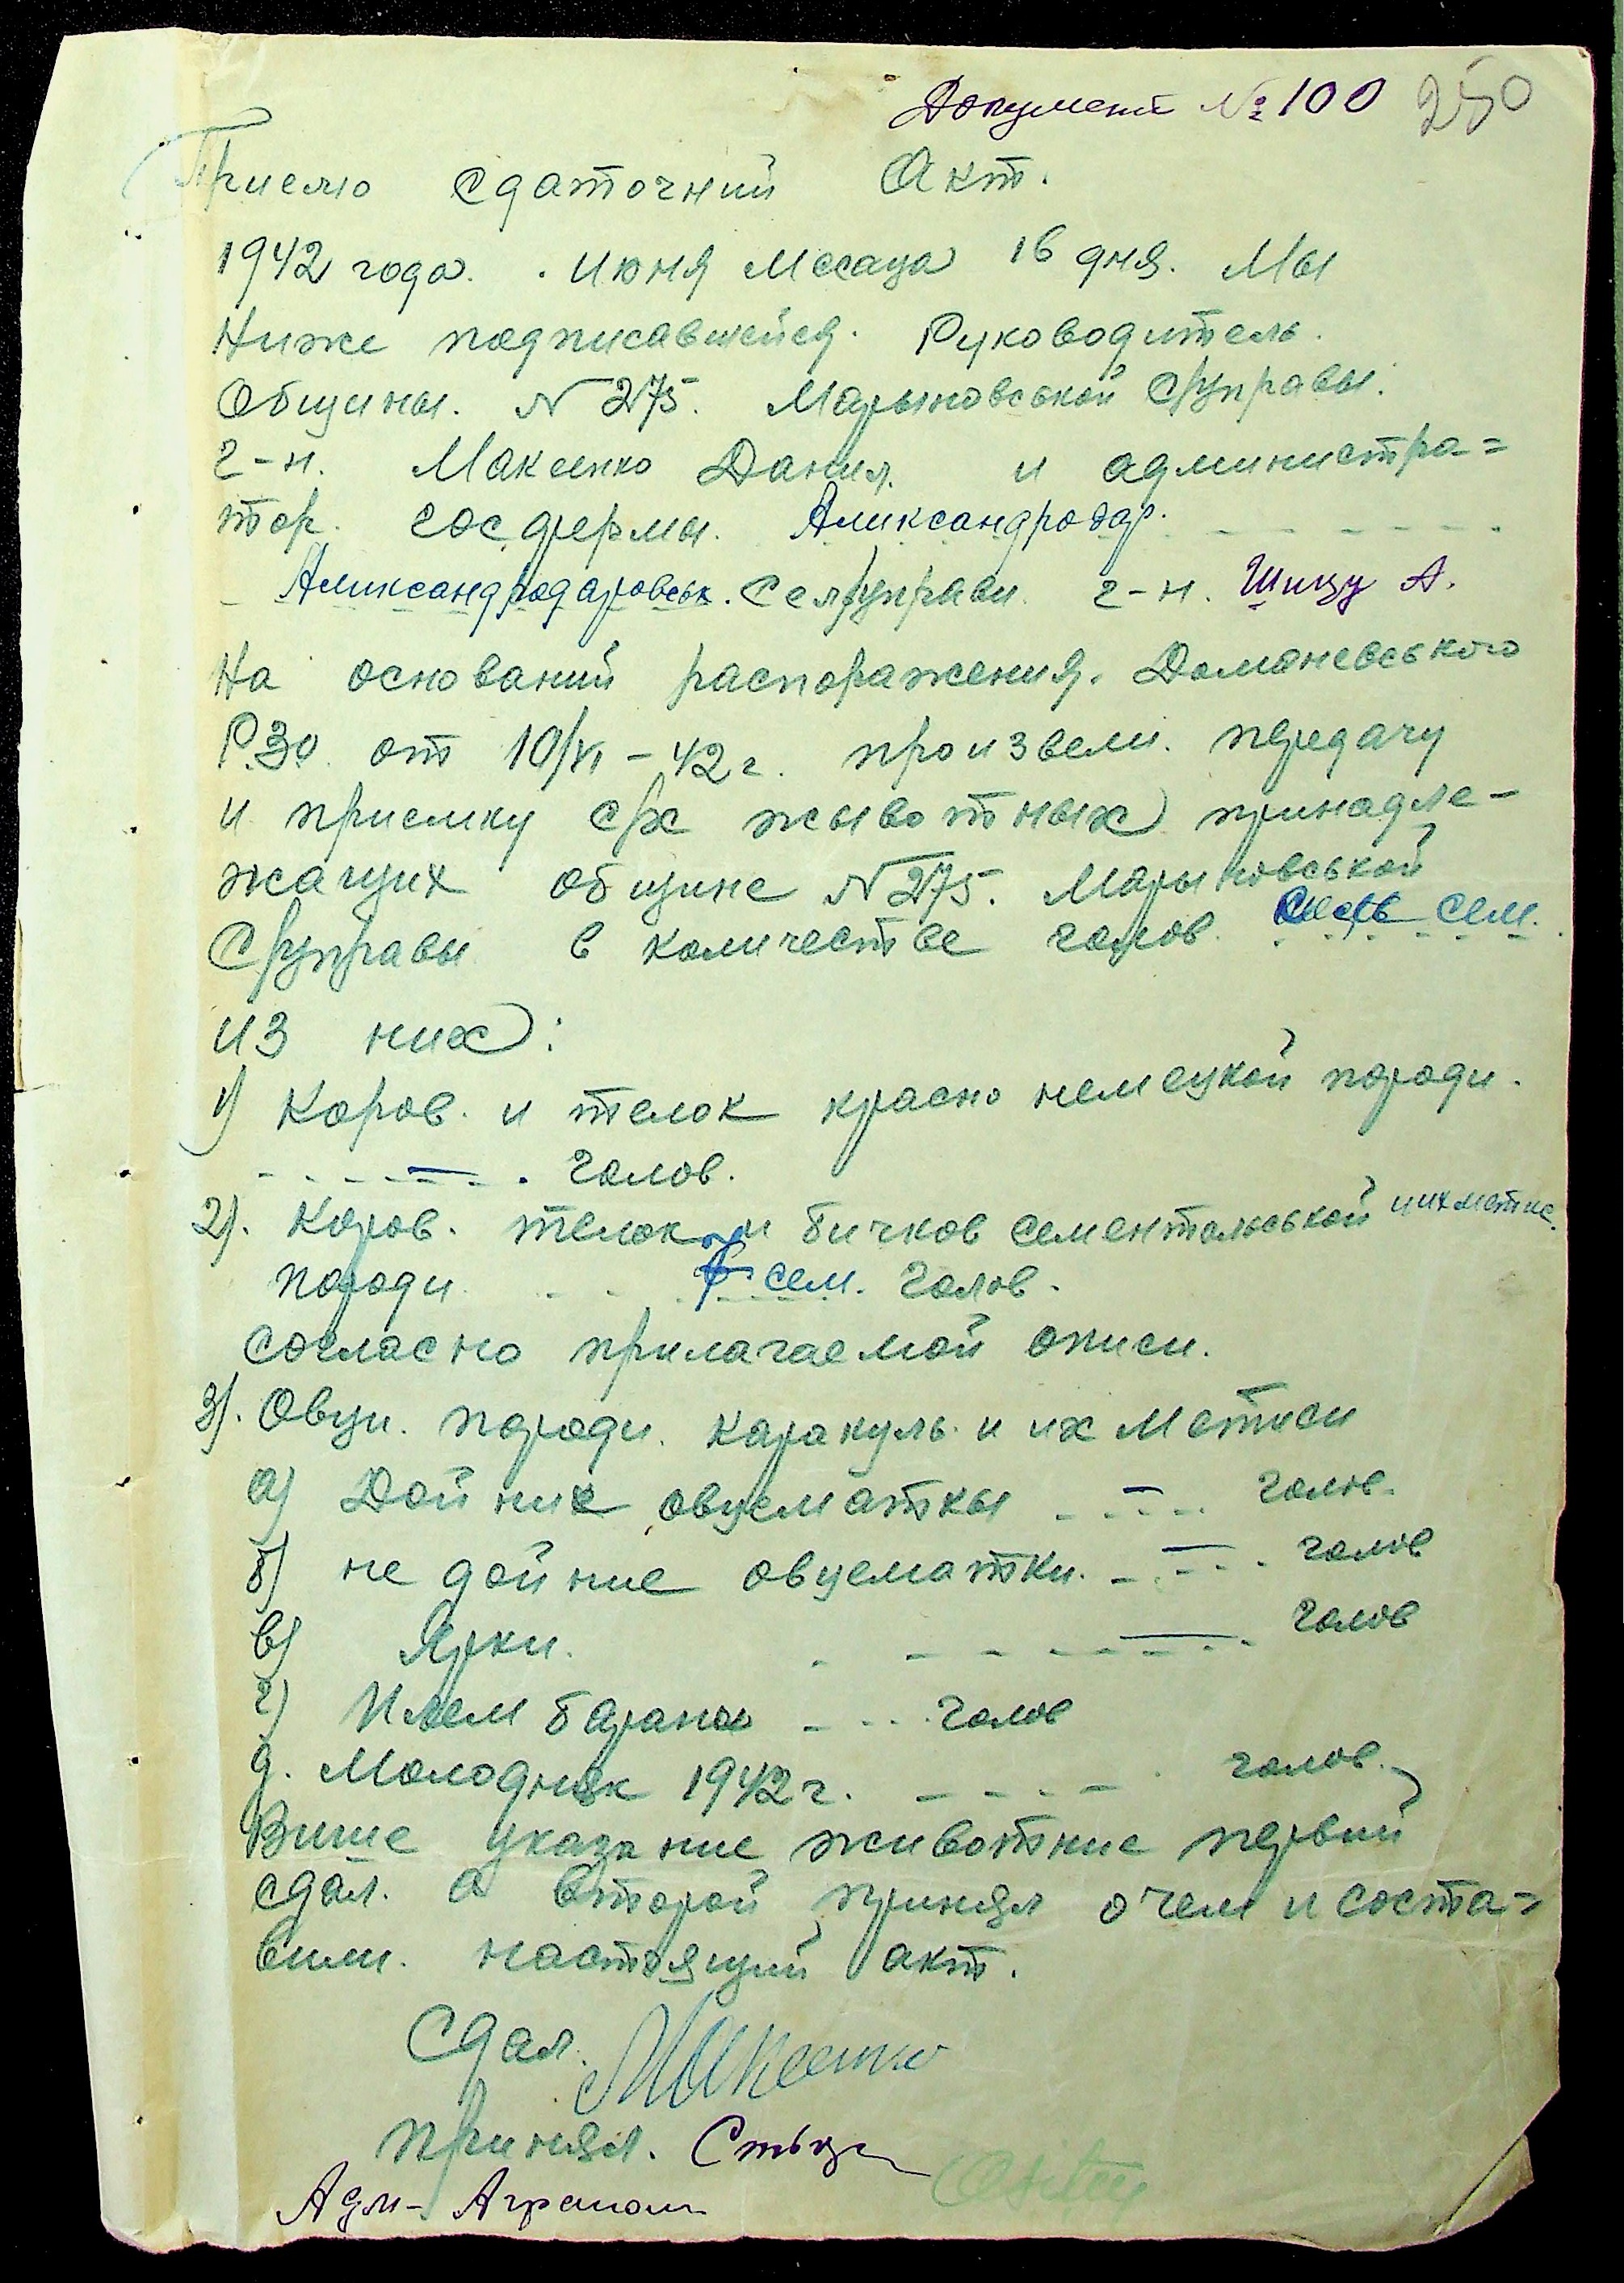 Документ № 100 250
Приемо сдаточний Акт.
1942 года. Июня Месаца 16 дня. Мы
Ниже подписавшейся. Руководитель.
Общины. N 275. Марьяновськой С/управы.
г-н. Макеенко Данил. и администра=
тор. госфермы. Аликсандродар.
Аликсандродаровськ. Сел/управи г-н. Шицу А.
На оснований распоражения. Доманевського
РЗО от 10/VI – 42 г. произвели. передачу
и приемку с/х жывотных принадле-
жащих общине N 275. Марьяновськой
С/управы в количестве голов сем.
из них:
1) Коров. и телок красно немецкой породи.
– голов.
2). Коров. телок и бичков сементальськой и их метис.
породи сем. голов.
согласно прилагаемой описи.
3). Овци. породи. каракуль и их метиси
а) Дойние овцематкы – голов.
б) не дойние овцематки. – голов
в) Ярки. – голов
г) Плем барани голов
д. Молодняк 1942 г. – голов.
Више указание животние первий
сдал. а второй принял о чем и соста=
вили. настоящий акт.
Сдал. Макеенко
Принял.
Адм- Агроном